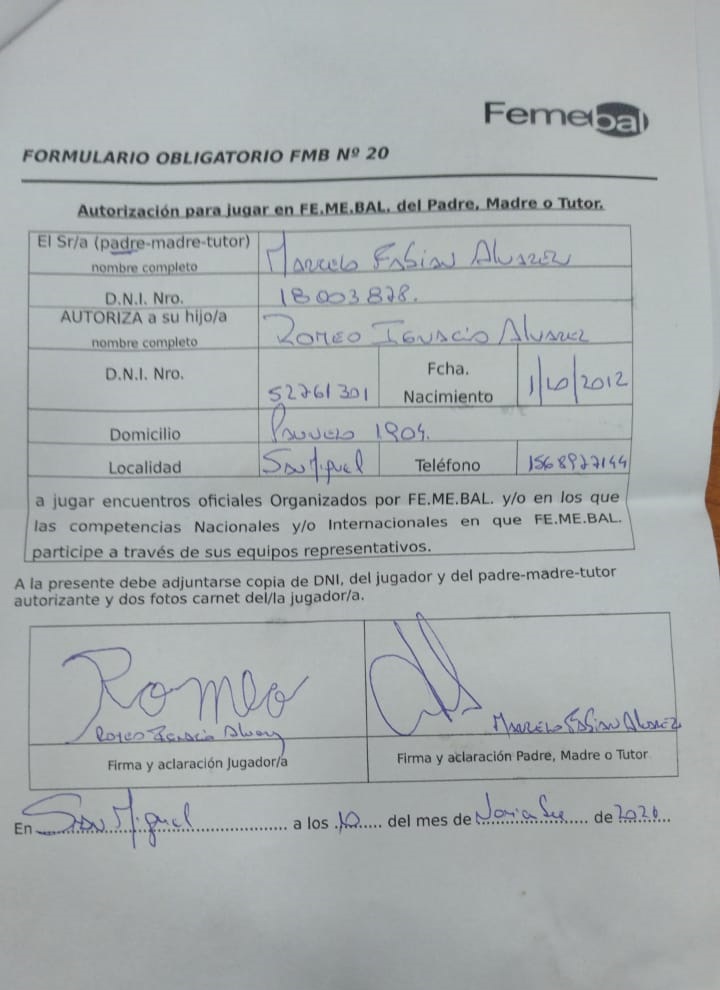 Femebal
FORMULARIO OBLIGATORIO FMB Nº 20
Autorización para jugar en FE.ME.BAL. del Padre, Madre o Tutor.
El Sr/a (padre-madre-tutor) nombre completo Marcelo Fabian Alvarez
D.N.I. Nro. 18003878.
AUTORIZA a su hijo/a nombre completo Romeo Ignacio Alvarez
D.N.I. Nro. 52761301 Fcha. Nacimiento 1/10/2012
Domicilio 1904.
Localidad San Miguel Teléfono 1568927144
a jugar encuentros oficiales Organizados por FE.ME.BAL. y/o en los que
las competencias Nacionales y/o Internacionales en que FE.ME.BAL.
participe a través de sus equipos representativos.
A la presente debe adjuntarse copia de DNI, del jugador y del padre-madre-tutor
autorizante y dos fotos carnet del/la jugador/a.
Romeo
Romeo Ignacio Alvarez Marcelo Fabian Alvarez
Firma y aclaración Jugador/a Firma y aclaración Padre, Madre o Tutor
En San Miguel a los 10 del mes de de 2020